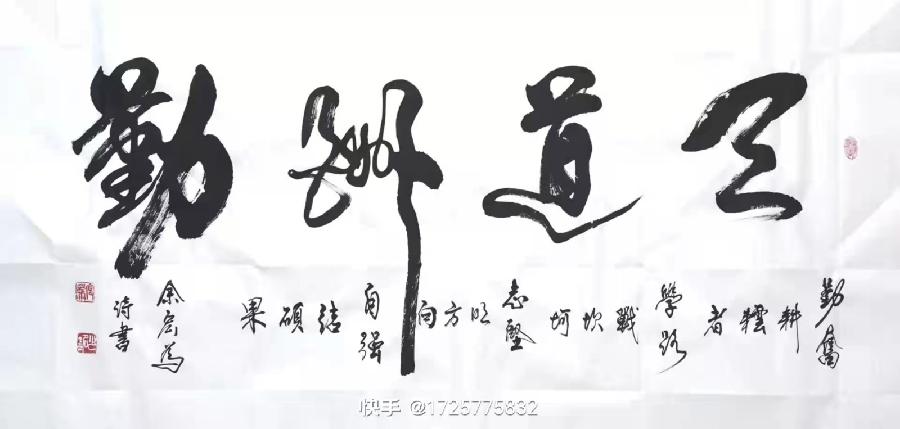 天道酬勤
勤奮耕耘者
學路戰坎坷
志堅明方向
自强结碩果
余宏為
詩書
快手 @1725775832